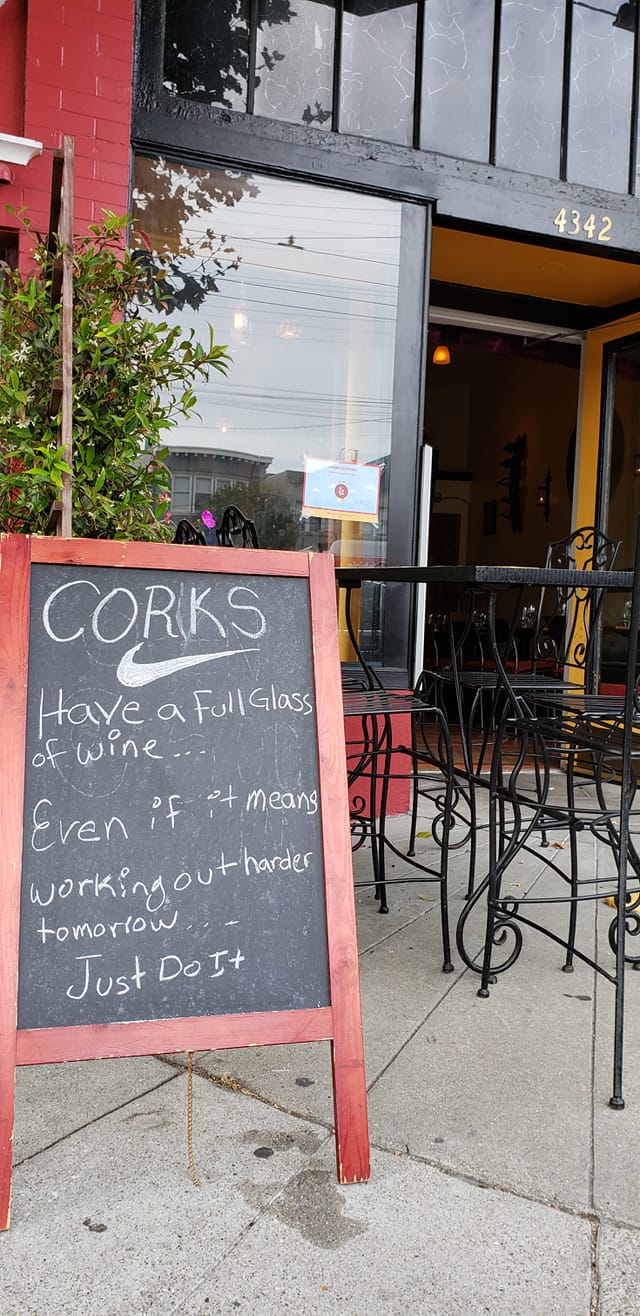 4342
CORKS
Have a Full Glass
of wine...
Even if it means
working out harder
tomorrow....
Just Do It